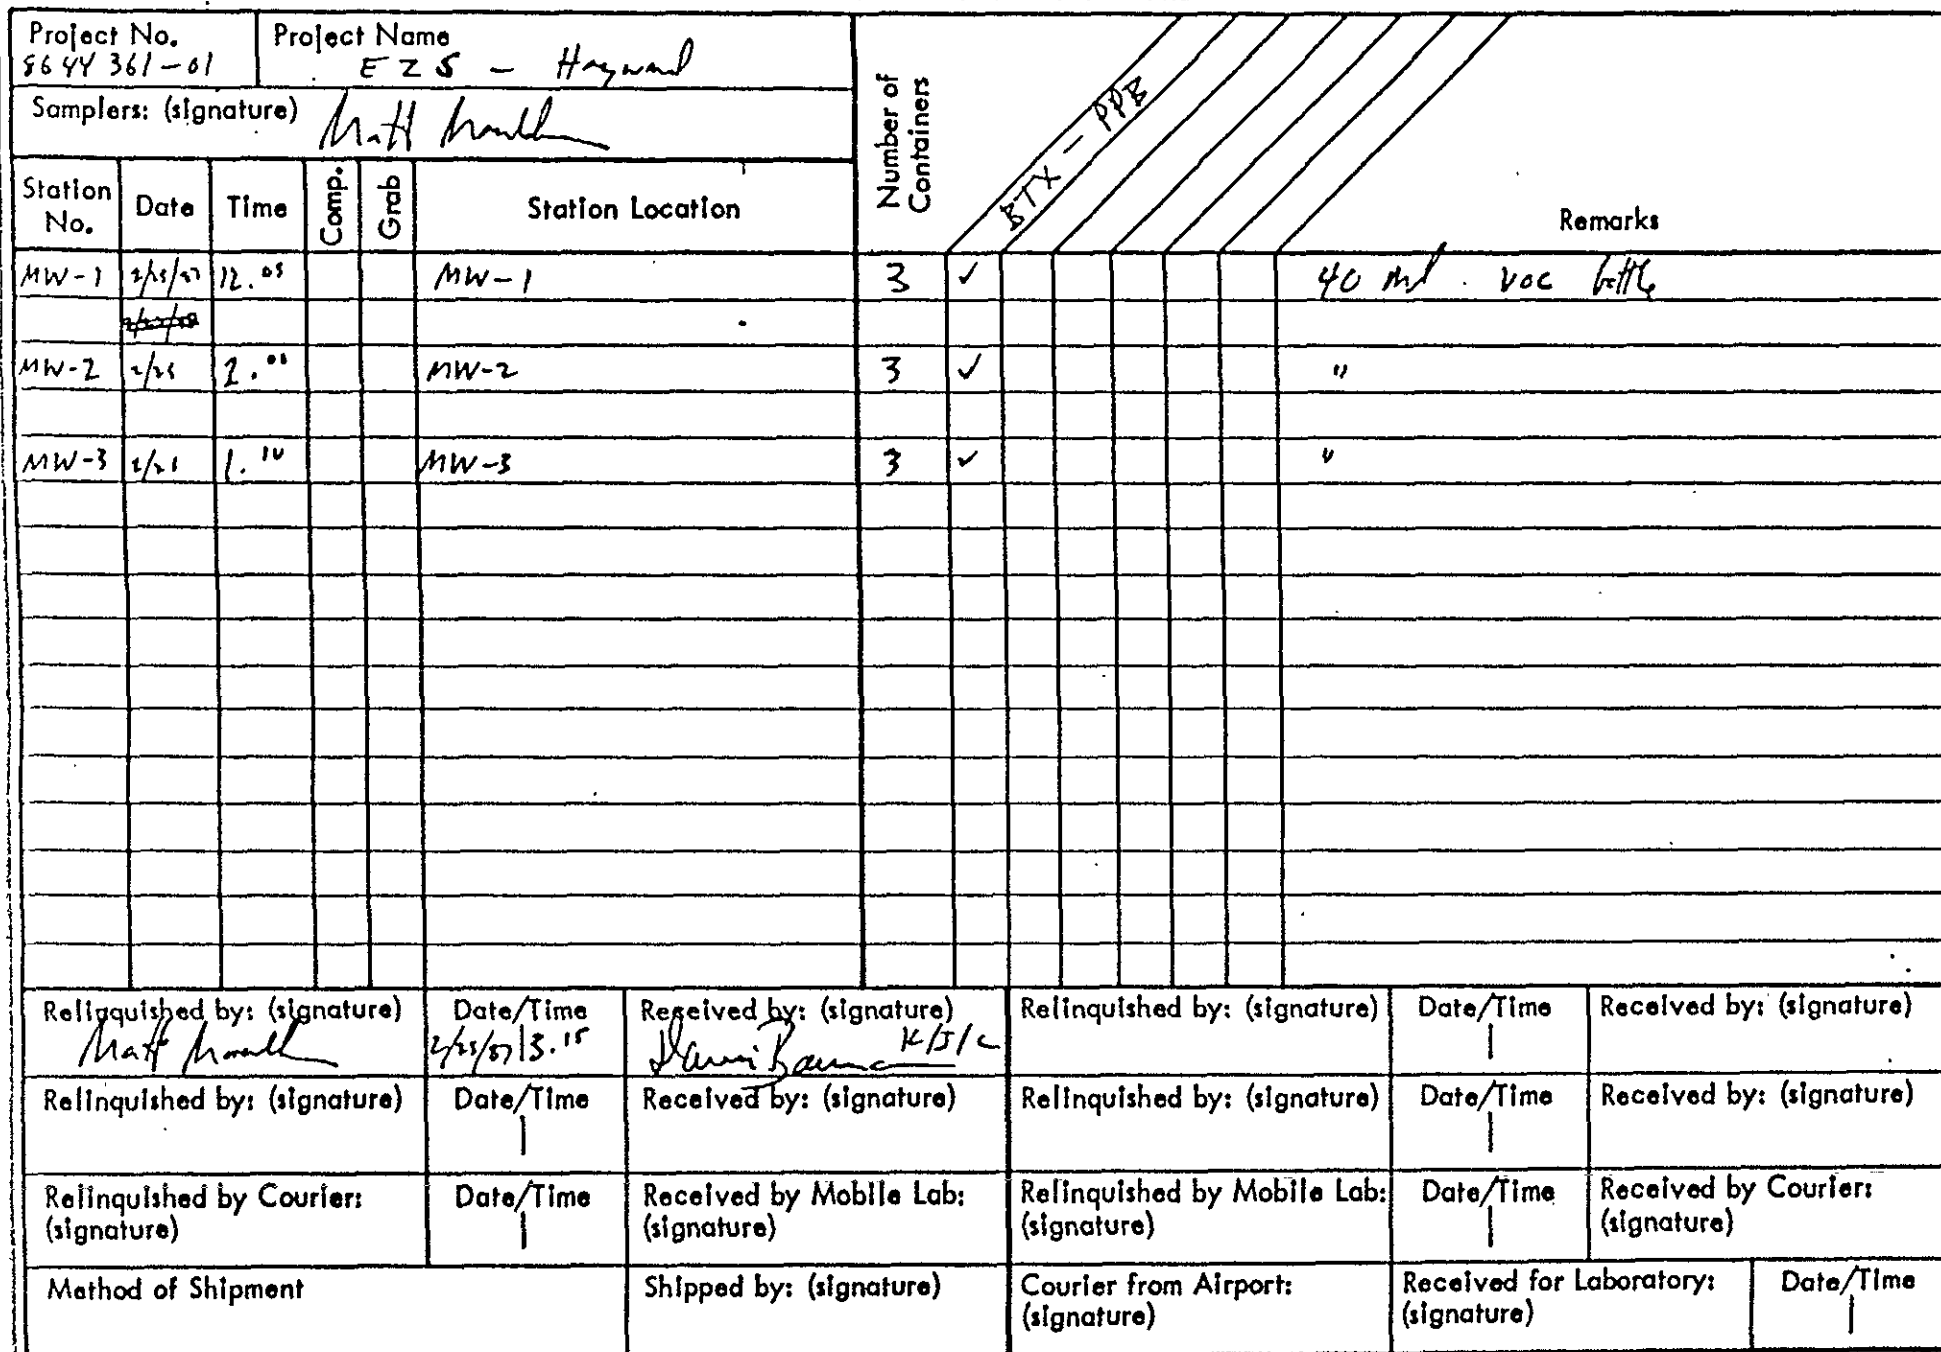 Project No.
8644 361-01
Project Name
EZS - Hayward
Samplers: (signature) Matt
Number of Containers
BTX - PPB
Station No. Date Time Comp. Grab Station Location Remarks
MW-1 2/25/87 12.05 MW-1 3 ✓ 40 ml. VOC bottle
MW-2 2/25 2.00 MW-2 3 ✓ "
MW-3 1.10 MW-3 3 ✓ "
Relinquished by: (signature) Date/Time Received by: (signature) Relinquished by: (signature) Date/Time Received by: (signature)
Matt 2/25/87 3.15 K/J/C
Relinquished by: (signature) Date/Time Received by: (signature) Relinquished by: (signature) Date/Time Received by: (signature)
Relinquished by Courier: (signature) Date/Time Received by Mobile Lab: (signature) Relinquished by Mobile Lab: (signature) Date/Time Received by Courier: (signature)
Method of Shipment Shipped by: (signature) Courier from Airport: (signature) Received for Laboratory: (signature) Date/Time